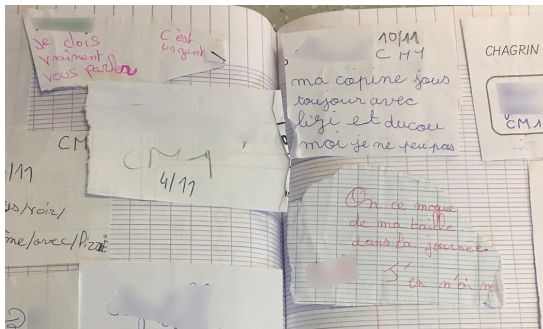 je dois
vraiment
vous parler
C'est
urgent
CM
/11
CM1
4/11
10/11
CM1
ma copine jous
toujour avec
lizi et ducou
moi je ne peu pas
CHAGRIN
CM1
On ce moque
de ma taille
dans la journée.
J'en n'ai m